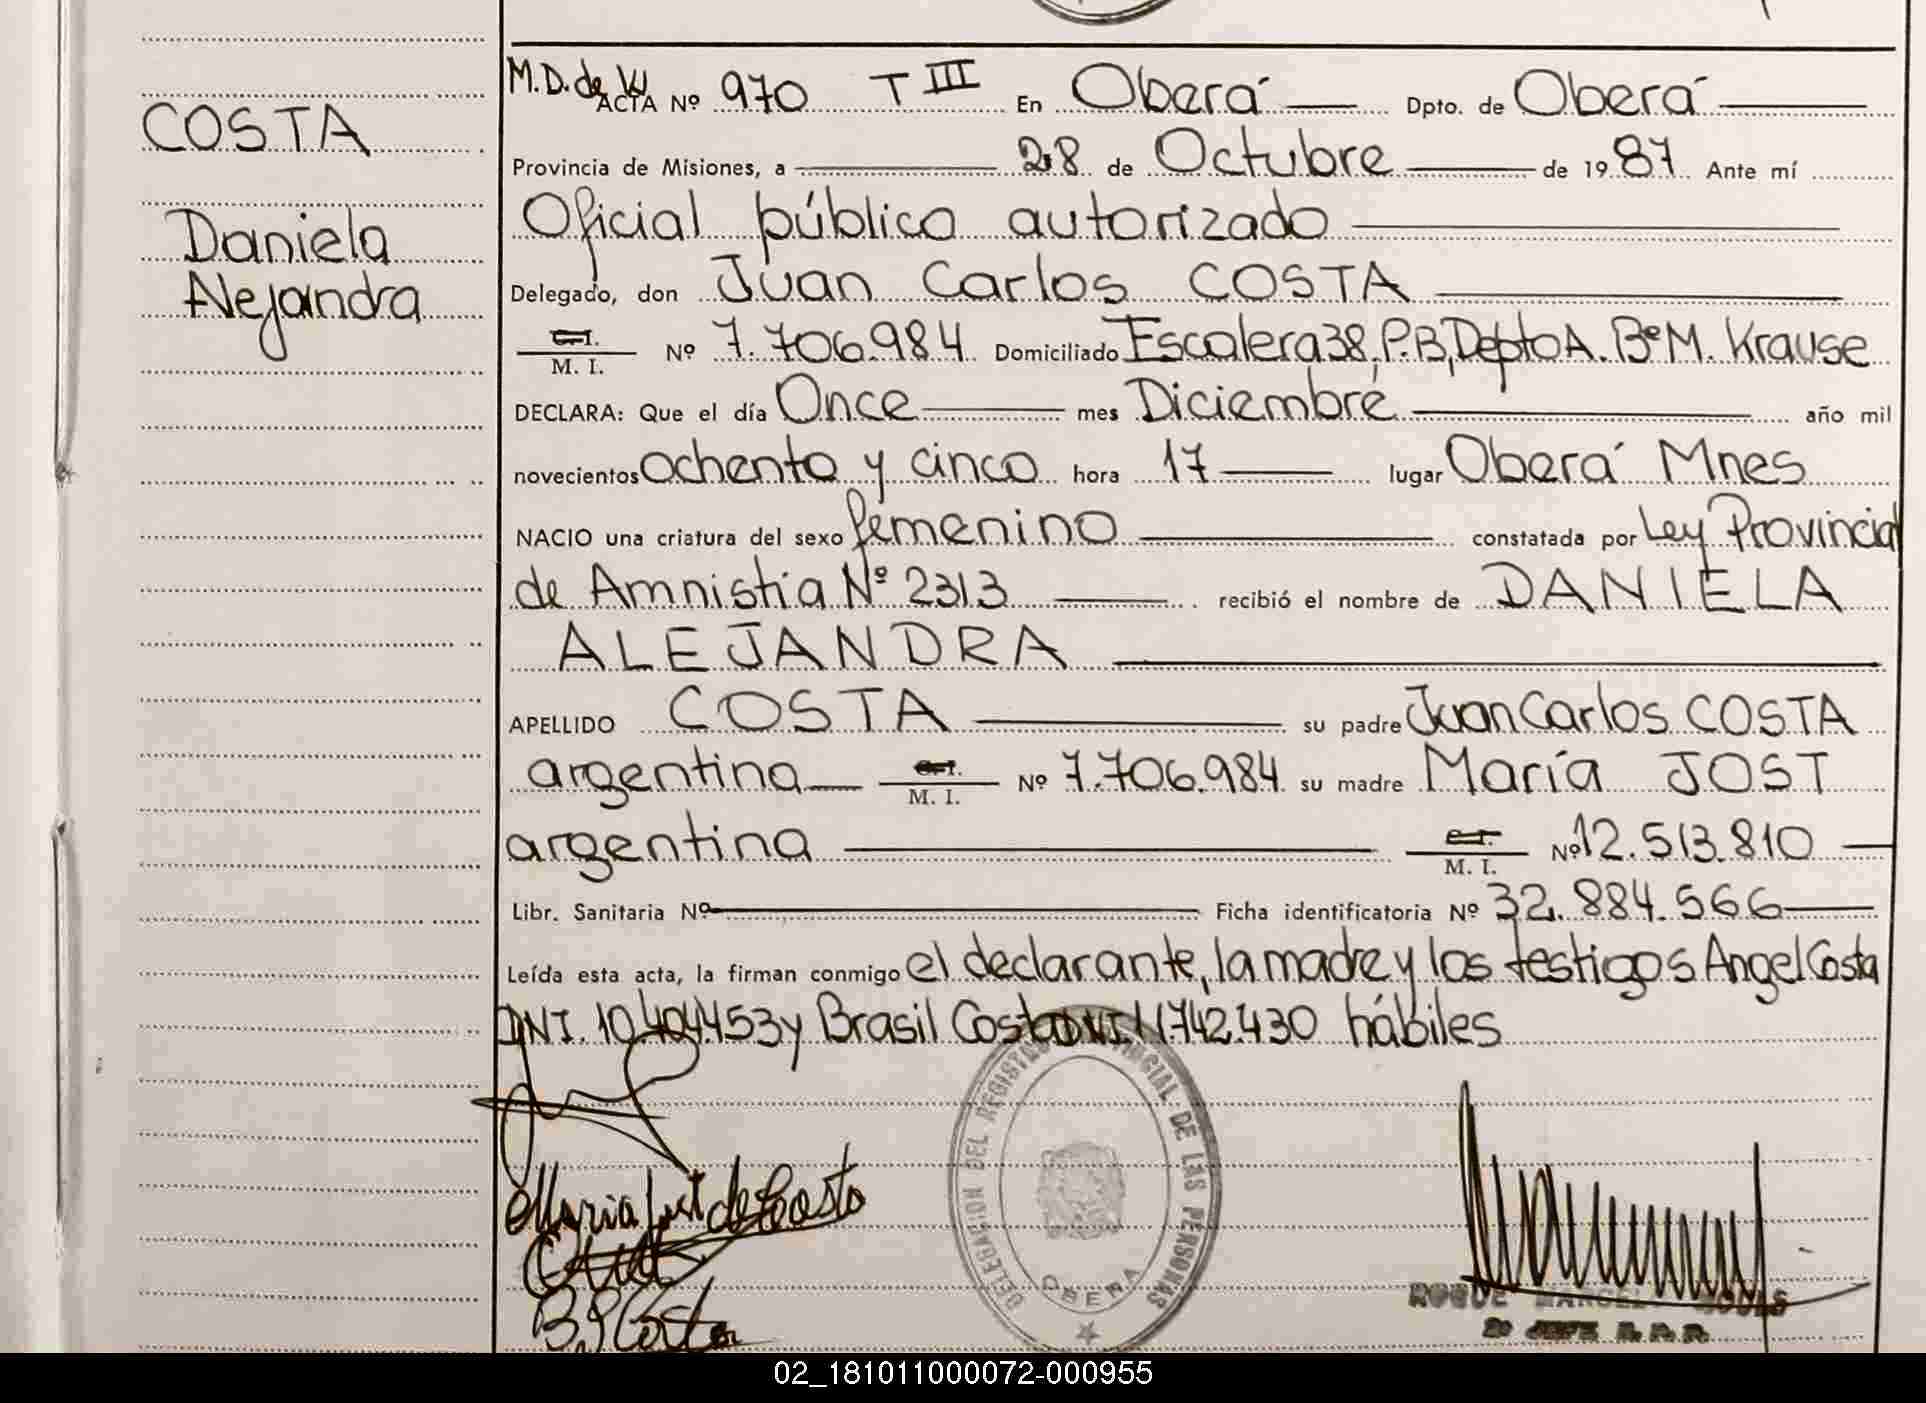 COSTA
Daniela
Alejandra
M.D. de W
ACTA Nº 970 T III En Oberá Dpto. de Oberá
Provincia de Misiones, a 28 de Octubre de 1987 Ante mí
Oficial público autorizado
Delegado, don Juan Carlos COSTA
C.I.
M. I. Nº 7.706.984 Domiciliado Escalera 38, P.B, Depto A. Bº M. Krause
DECLARA: Que el día Once mes Diciembre año mil
novecientos ochenta y cinco hora 17 lugar Oberá Mnes
NACIO una criatura del sexo femenino constatada por Ley Provincial
de Amnistia Nº 2313 recibió el nombre de DANIELA
ALEJANDRA
APELLIDO COSTA su padre Juan Carlos COSTA
argentina C.I. M. I. Nº 7.706.984 su madre María JOST
argentina C.I. M. I. Nº 12.513.810
Libr. Sanitaria Nº Ficha identificatoria Nº 32.884.566
Leída esta acta, la firman conmigo el declarante, la madre y los testigos Angel Costa
DNI. 10.404.453 y Brasil Costa DNI. 11.742.430 hábiles
DELEGACION DEL REGISTRO PROVINCIAL DE LAS PERSONAS
OBERA
Maria Jost de Costa
B. Costa
ROQUE MARCEL
2º JEFE R. P. P.
02_181011000072-000955